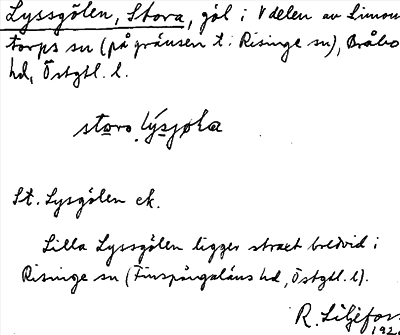 Lyssgölen, Stora, göl i V delen av Simons
torps sn (på gränsen t. Risinge sn), Bråbo
hd, Östgtl. l.
storo lýsjola
St. Lysgölen ek.
Lilla Lyssgölen ligger straxt bredvid i
Risinge sn (Finspångaläns hd, Östgtl. l).
R. Liljefors
192